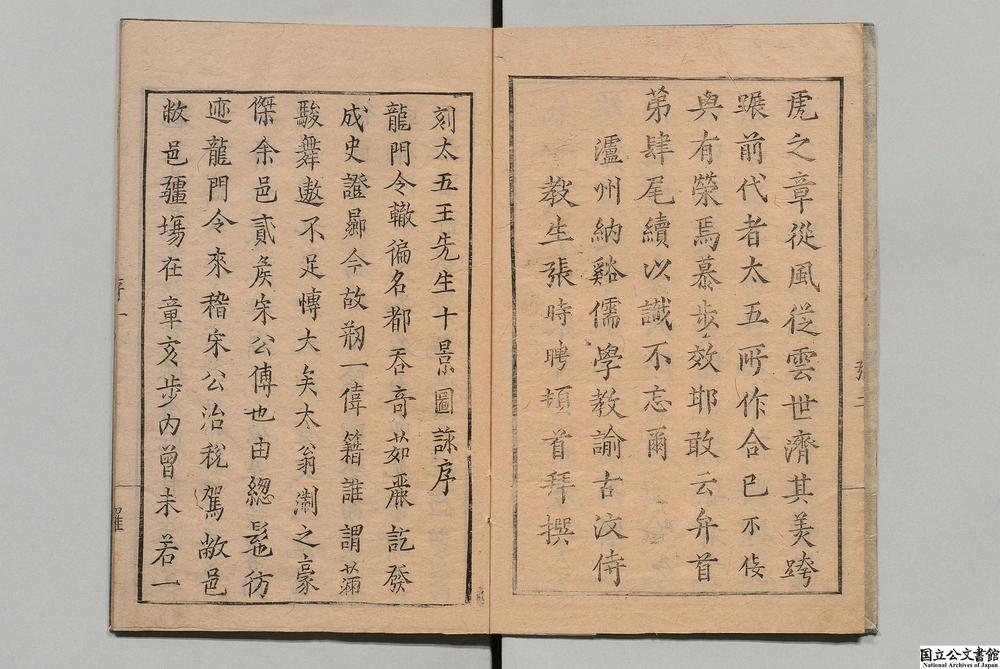 虎之章從風從雲世濟其美跨
躡前代者太五所作合已不佞
與有榮焉慕步效耶敢云弁首
苐肆尾續以識不忘爾
瀘州納谿儒學教諭古汶侍
教生張時聘頓首拜撰
刻太五王先生十景圖詠序
龍門令轍徧名都吞奇茹麗訖發
成史證曏今故刱一偉籍誰謂
駿舞遨不足慱大矣太翁淛之豪
傑余邑貳矦宋公傅也由緫髢彷
迹龍門令來稽宋公治稅駕敝邑
敝邑疆場在章亥步內曾未若一
序一
國立公文書館
National Archives of Japan